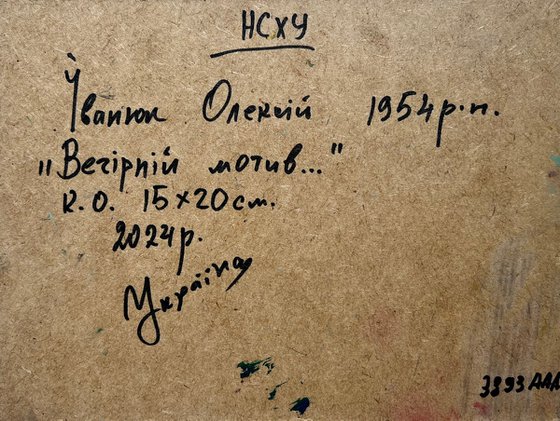 НСХУ
Іванюк Олексій 1954 р.н.
"Вечірній мотив..."
к.о. 15×20 см.
2024 р.
Україна